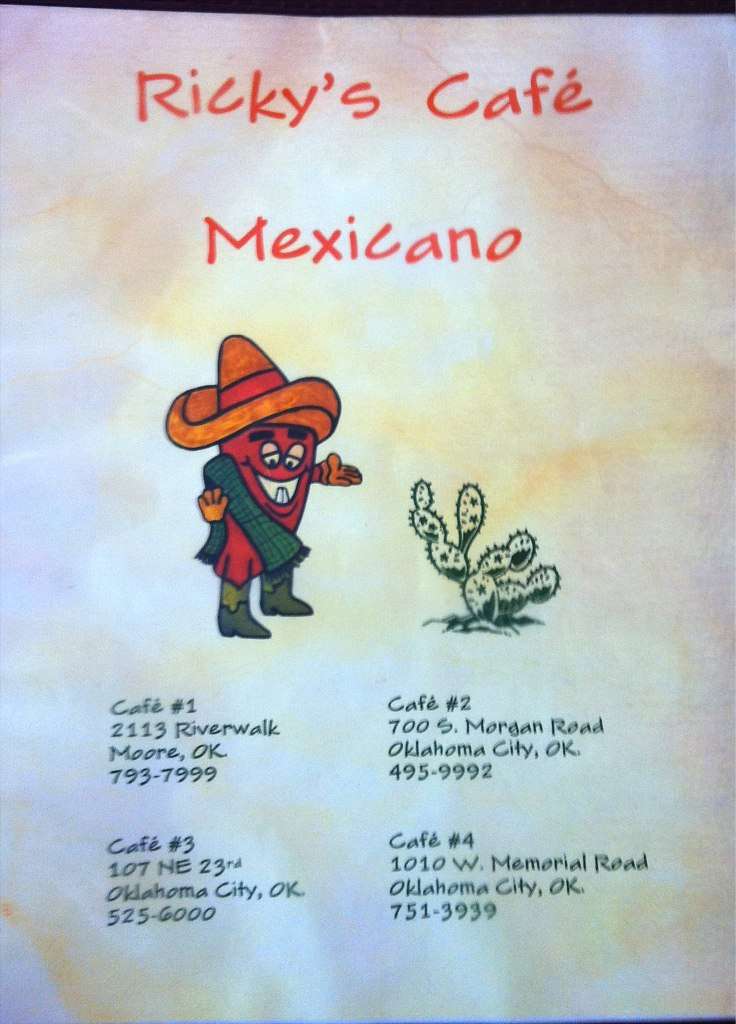 Ricky's Café
Mexicano
Café #1
2113 Riverwalk
Moore, OK.
793-7999
Café #2
700 S. Morgan Road
Oklahoma City, OK.
495-9992
Café #3
107 NE 23rd
Oklahoma City, OK.
525-6000
Café #4
1010 W. Memorial Road
Oklahoma City, OK.
751-3939